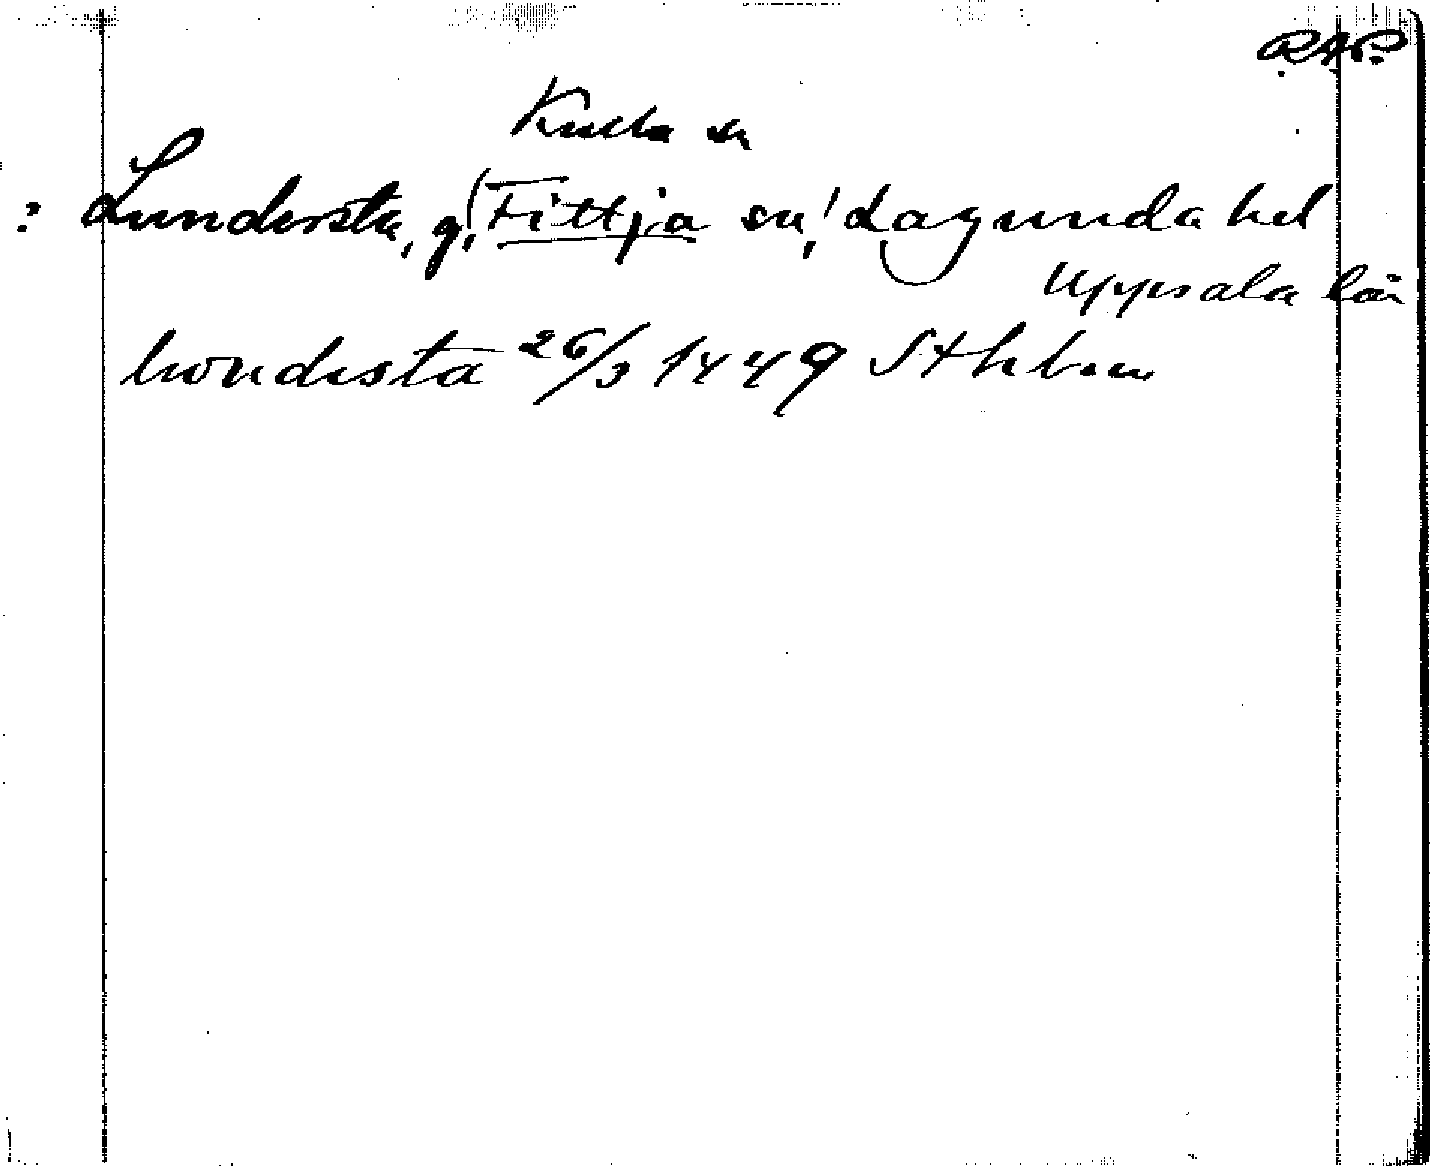 R.A.P.
Kulla sn
: Lundersta, g, (Fittja sn,) Lagunda hd
Uppsala län
hondista 26/3 1449 Sthlm